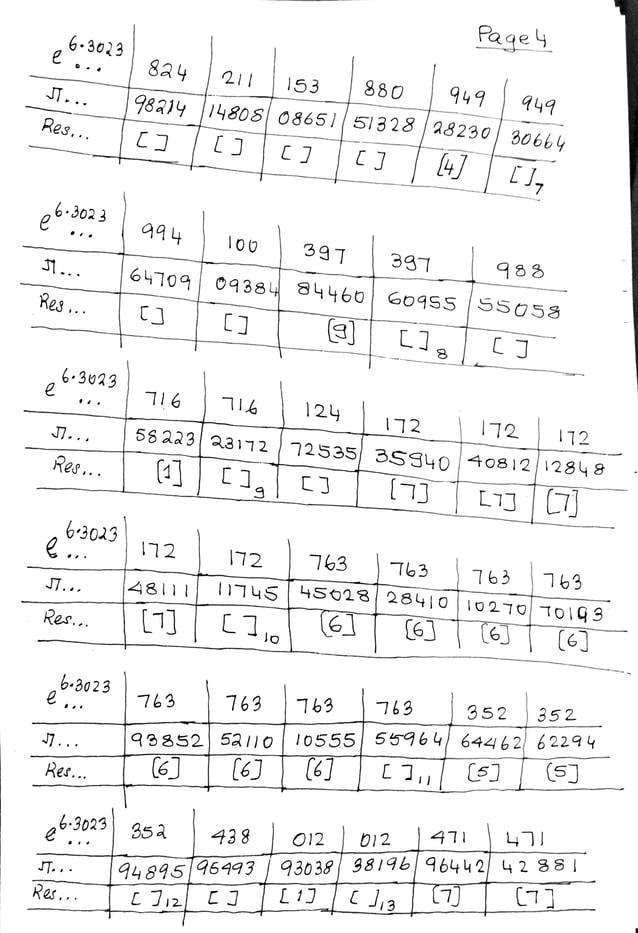 Page 4
e^6.3023... 824 211 153 880 949 949
π... 98214 14808 08651 51328 28230 30664
Res... [ ] [ ] [ ] [ ] [4] [ ]7
e^6.3023... 994 100 397 397 988
π... 64709 09384 84460 60955 55058
Res... [ ] [ ] [9] [ ]8 [ ]
e^6.3023... 716 716 124 172 172 172
π... 58223 23172 72535 35940 40812 12848
Res... [1] [ ]9 [ ] [7] [7] [7]
e^6.3023... 172 172 763 763 763 763
π... 48111 11745 45028 28410 10270 70193
Res... [7] [ ]10 [6] [6] [6] [6]
e^6.3023... 763 763 763 763 352 352
π... 93852 52110 10555 55964 64462 62294
Res... [6] [6] [6] [ ]11 [5] [5]
e^6.3023... 352 438 012 012 471 471
π... 94895 95493 93038 38196 96442 42881
Res... [ ]12 [ ] [1] [ ]13 [7] [7]